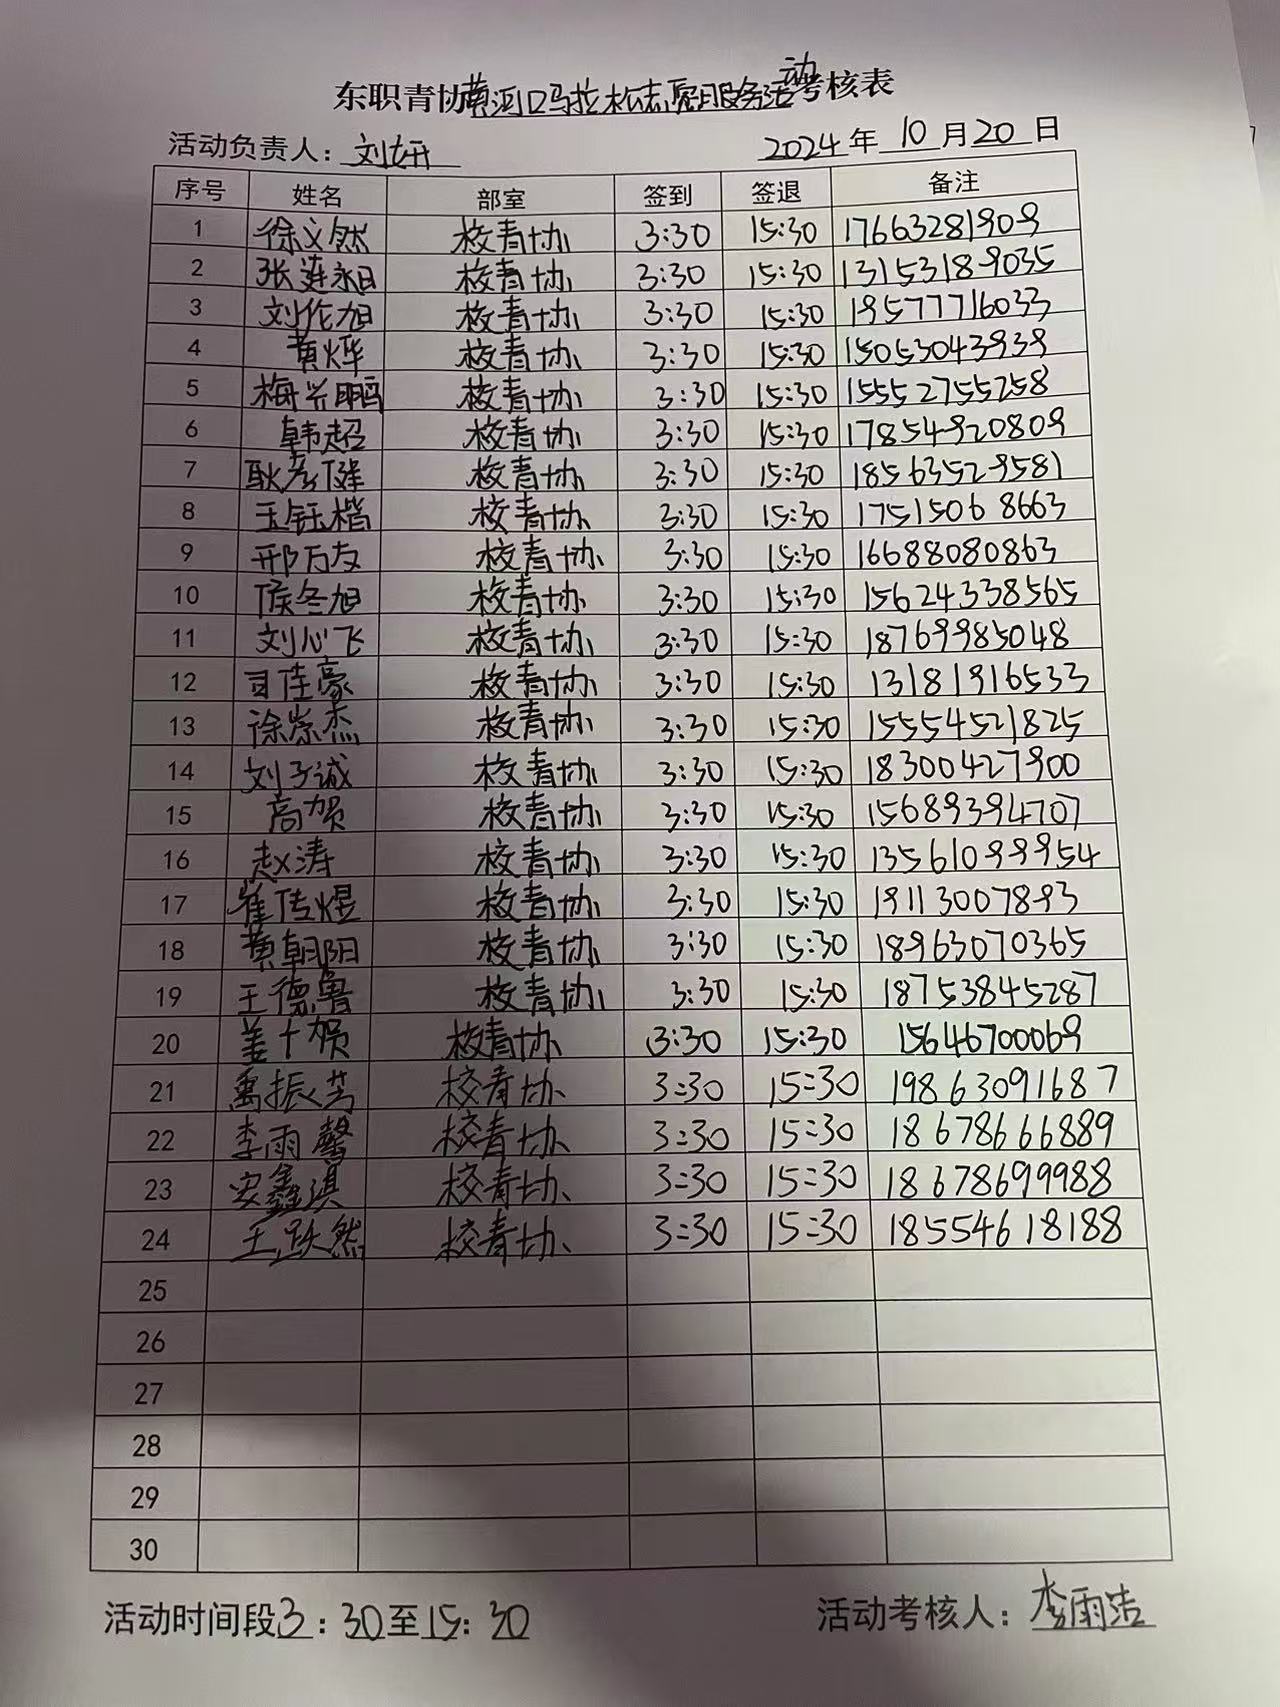 东职青协黄河口马拉松志愿服务活动考核表
活动负责人：刘妍 2024年10月20日
序号 姓名 部室 签到 签退 备注
1 徐文然 校青协 3:30 15:30 17663281909
2 张连永日 校青协 3:30 15:30 13153189035
3 刘作旭 校青协 3:30 15:30 19577716033
4 黄烨 校青协 3:30 15:30 15053043939
5 梅兴鹏 校青协 3:30 15:30 15552755258
6 韩超 校青协 3:30 15:30 17854920809
7 耿彦健 校青协 3:30 15:30 18563529581
8 王钰楷 校青协 3:30 15:30 17515068663
9 邢万友 校青协 3:30 15:30 16688080863
10 侯冬旭 校青协 3:30 15:30 15624338565
11 刘心飞 校青协 3:30 15:30 18769985048
12 司佳豪 校青协 3:30 15:30 13181916533
13 徐崇杰 校青协 3:30 15:30 15554521825
14 刘子诚 校青协 3:30 15:30 18300427900
15 高贺 校青协 3:30 15:30 15689394707
16 赵涛 校青协 3:30 15:30 13561099954
17 崔传煜 校青协 3:30 15:30 19113007893
18 黄朝阳 校青协 3:30 15:30 18963070365
19 王德鲁 校青协 3:30 15:30 18753845287
20 姜十贺 校青协 3:30 15:30 15646700069
21 禹振 校青协 3:30 15:30 19863091687
22 李雨馨 校青协 3:30 15:30 18678666889
23 安鑫淇 校青协 3:30 15:30 18678699988
24 王跃然 校青协 3:30 15:30 18554618188
25
26
27
28
29
30
活动时间段3：30至15：30 活动考核人：李雨洁